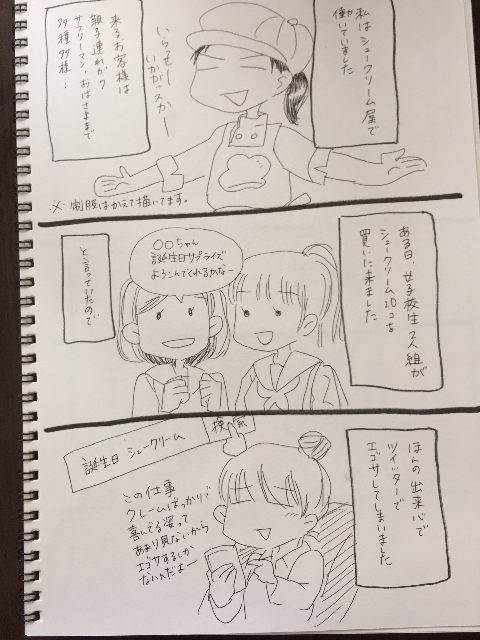 私はシュークリーム屋で
働いていました
いらっせー
いかがッスかー
来る、お客様は
親子連れから
サラリーマン・おばさままで
多種多様…
※制服はかえて描いてます。
ある日、女子校生2人組が
シュークリーム20コを
買いに来ました
○○ちゃん
誕生日サプライズ
よろこんでくれるかなー
と言っていたので
ほんの出来心で
ツイッターで
エゴサしてしまいました
誕生日 シュークリーム
検索
この仕事
クレームばっかりで
喜んでる姿って
あまり見ないから
エゴサするしか
ないんだよー